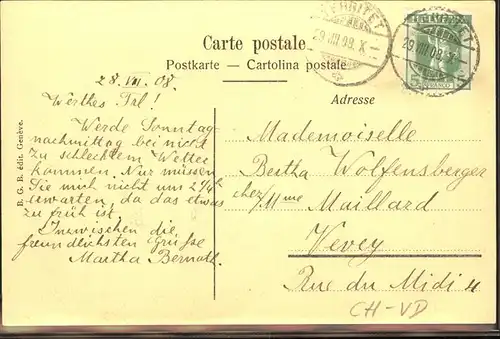 Carte postale
Postkarte — Cartolina postale
Adresse
TERRITET
29 VIII 08. X
29 VIII 08. X
HELVETIA
5
FRANCO
28. VIII. 08.
Wertes Frl!
Werde Sonntag-
nachmittag bei nicht
zu schlechtem Wetter
kommen. Nur müssen
Sie mich nicht um 2 Uhr
erwarten, da das etwas
zu früh ist.
Inzwischen die
freundlichsten Grüsse
Martha Bernath.
Mademoiselle
Bertha Wolfensberger
chez/Mme Maillard
Vevey
Rue du Midi 4
CH-VD
R. G. B. édit. Genève.